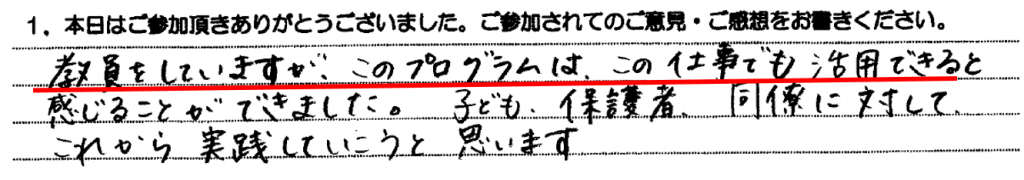 1．本日はご参加頂きありがとうございました。ご参加されてのご意見・ご感想をお書きください。
教員をしていますが、このプログラムは、この仕事でも活用できると
感じることができました。子ども、保護者、同僚に対して、
これから実践していこうと思います